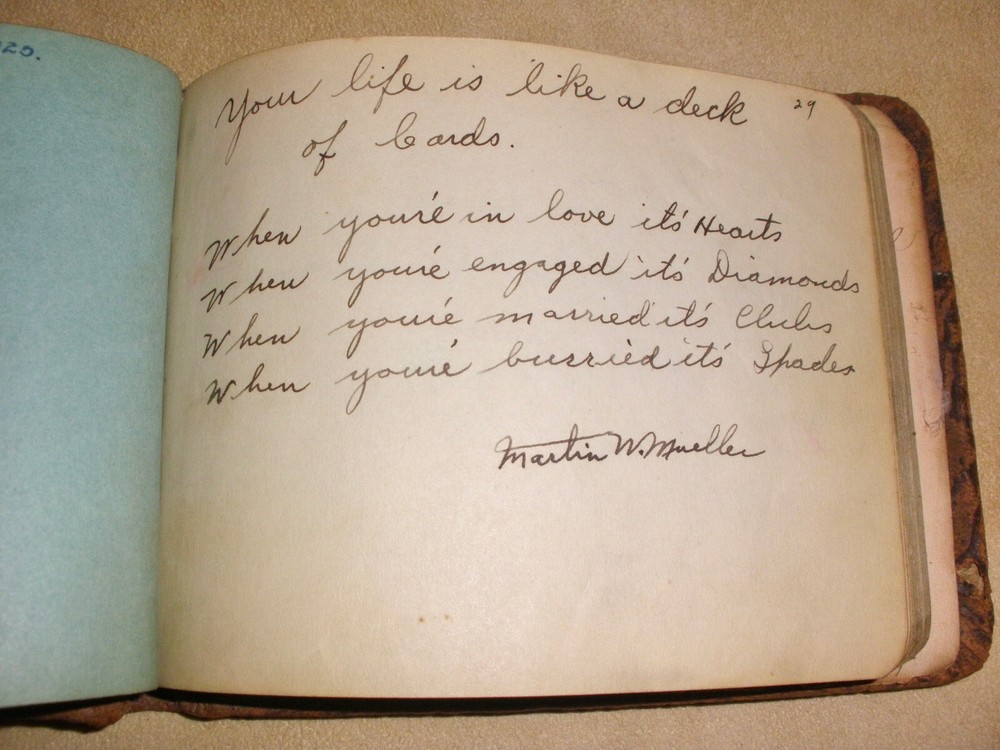 20.
Your life is like a deck 29
of Cards.
When you're in love it's Hearts
When you're engaged it's Diamonds
When you're married it's Clubs
When you're burried it's Spades
Martin W. Mueller